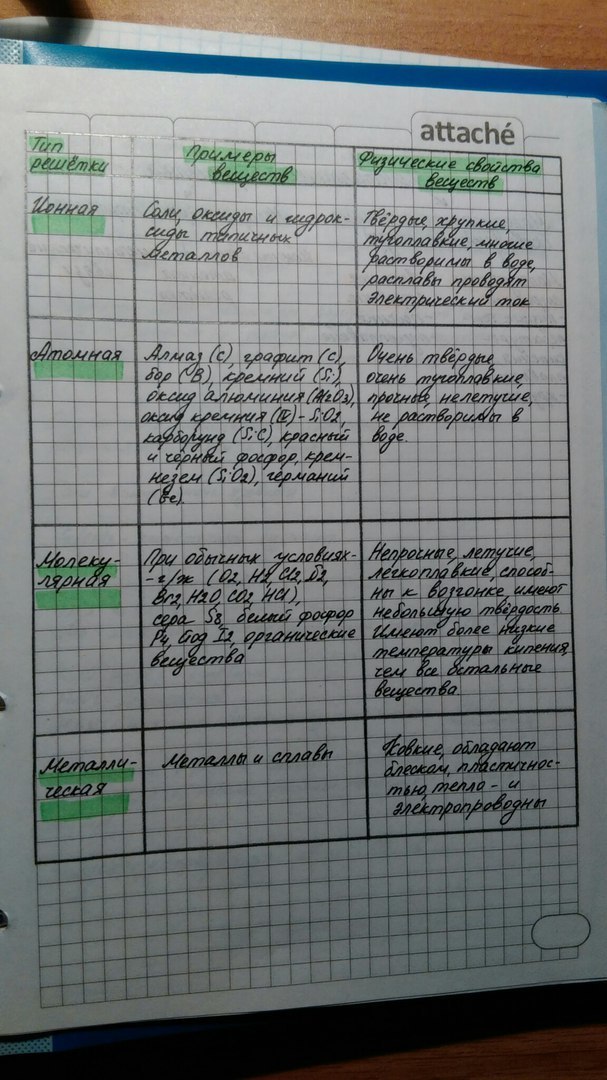 attaché
Тип
решётки
Примеры
веществ
Физические свойства
веществ
Ионная
Соли, оксиды и гидрок-
сиды типичных
металлов
Твёрдые, хрупкие,
тугоплавкие, многие
растворимы в воде,
расплавы проводят
электрический ток
Атомная
Алмаз (C), графит (C),
бор (B), кремний (Si),
оксид алюминия (Al2O3),
оксид кремния (IV) - SiO2,
карборунд (SiC), красный
и чёрный фосфор, крем-
незем (SiO2), германий
(Ge).
Очень твёрдые,
очень тугоплавкие,
прочные, нелетучие,
не растворимы в
воде.
Молеку-
лярная
При обычных условиях-
- г/ж (O2, H2, Cl2,
Br2, H2O, CO2, HCl),
сера S8, белый фосфор
P4, йод I2, органические
вещества
Непрочные, летучие,
легкоплавкие, способ-
ны к возгонке, имеют
небольшую твёрдость.
Имеют более низкие
температуры кипения,
чем все остальные
вещества.
Металли-
ческая
Металлы и сплавы
Ковкие, обладают
блеском, пластичнос-
тью, тепло - и
электропроводны